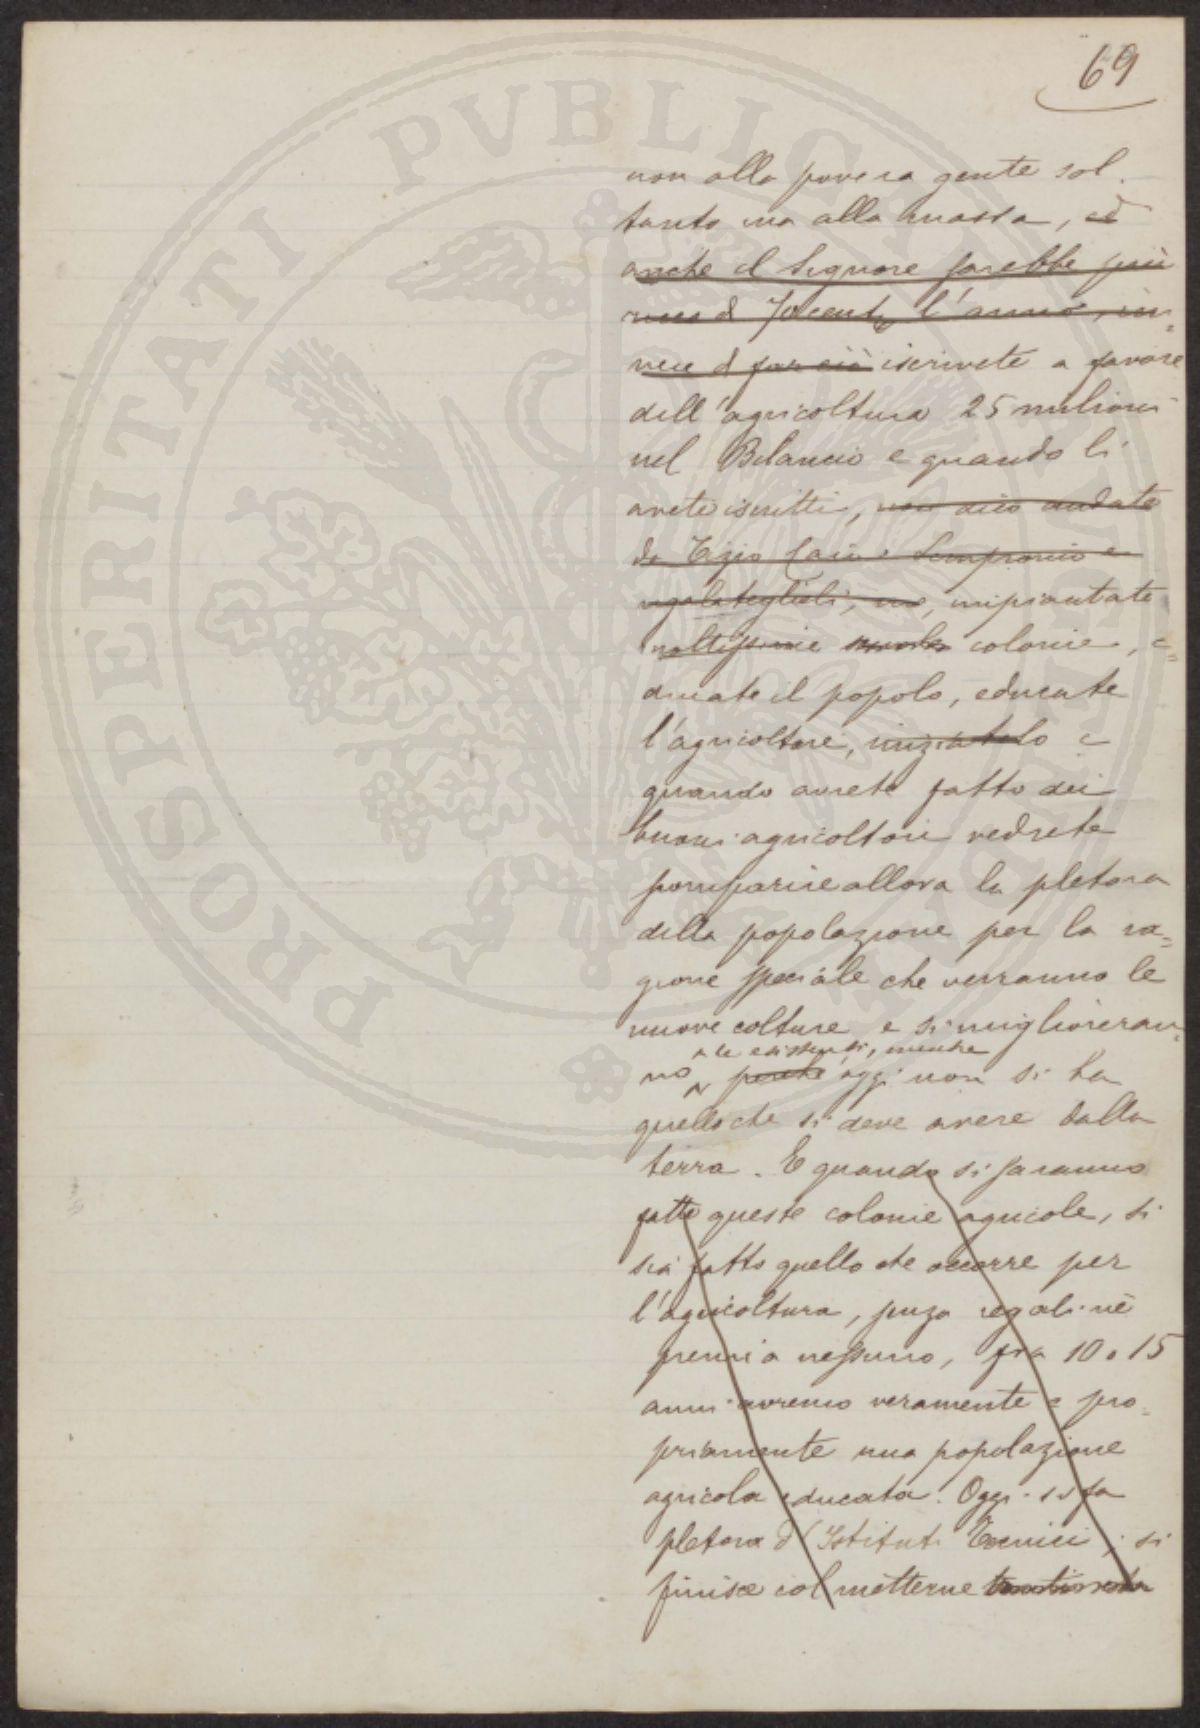 69
non alla povera gente sol-
tanto ma alla massa, ed
anche il Signore farebbe più
l'anno, in=
vece di far ciò iscrivete a favore
dell'agricoltura 25 milioni
nel Bilancio e quando li
avete iscritti, non dico andate
da Tizio Caio e Sempronio e
regalateglieli, ma, impiantate
moltissime colonie, e=
ducate il popolo, educate
l'agricoltore, iniziatelo e
quando avrete fatto dei
buoni agricoltori vedrete
scomparire allora la pletora
della popolazione per la ra=
gione speciale che verranno le
nuove colture e si miglioreran=
le esistenti, mentre
no perchè oggi non si ha
quello che si deve avere dalla
terra. E quando si saranno
fatte queste colonie agricole, si
sia fatto quello che occorre per
l'agricoltura, senza regali nè
premi a nessuno, fra 10 o 15
anni avremo veramente e pro=
priamente una popolazione
agricola educata. Oggi si fa
pletora d'Istituti Tecnici, si
finisce col metterne
PROSPERITATI PVBLICAE